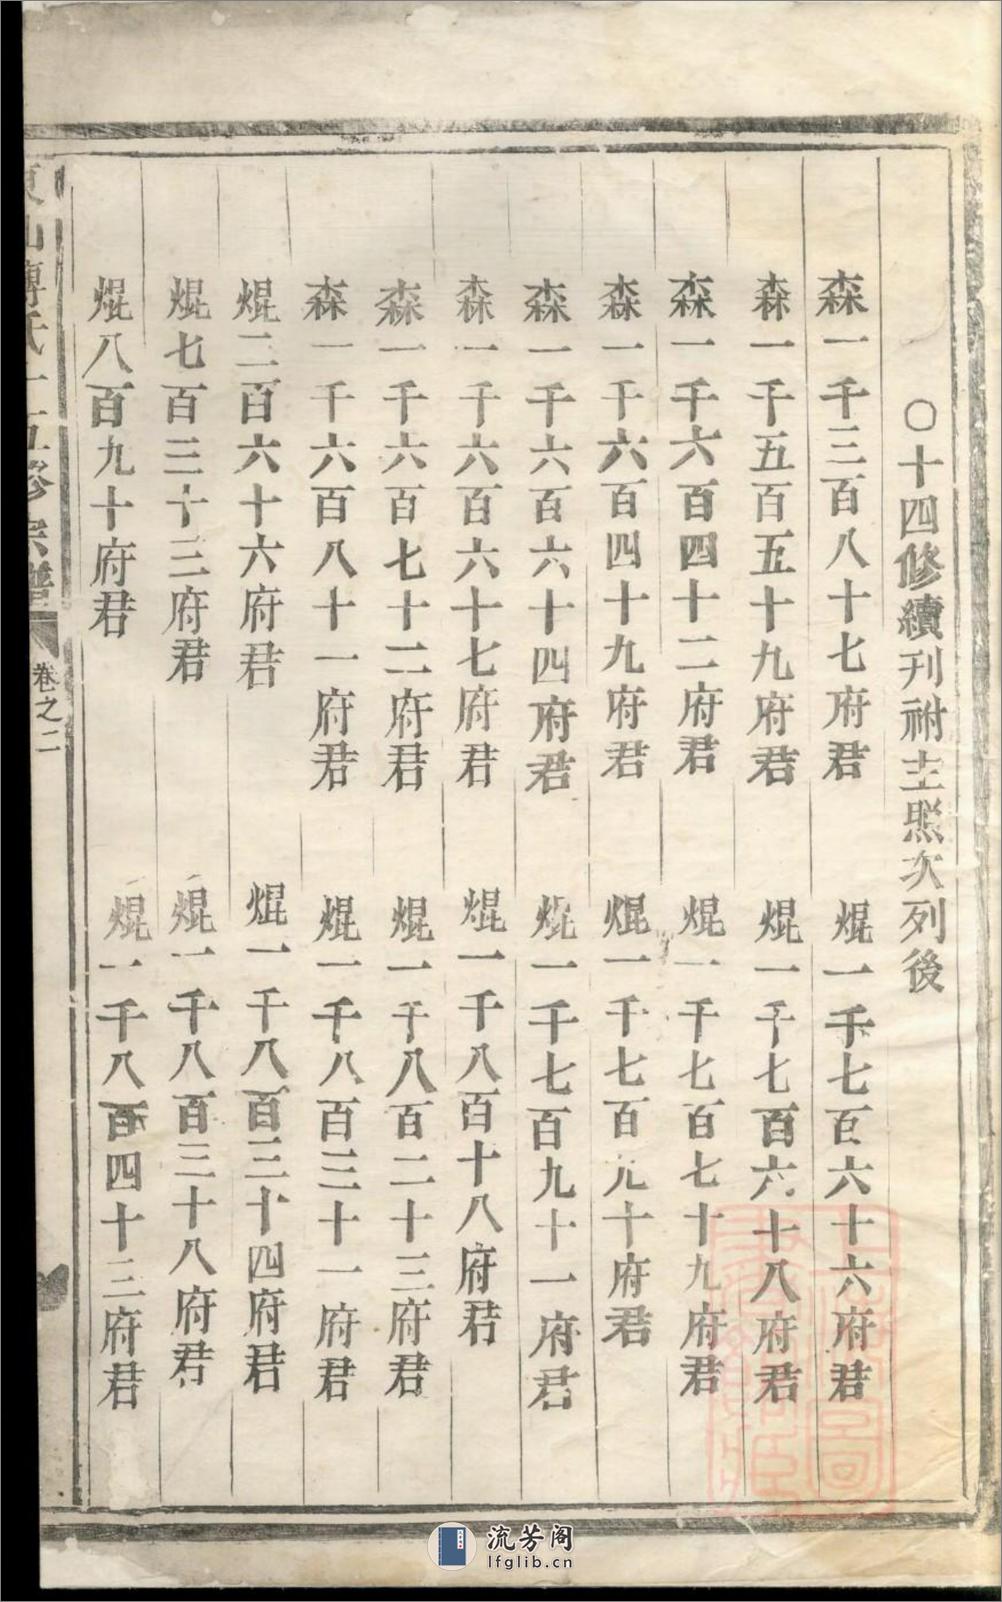 ○十四修續刊祔主照次列後
森一千三百八十七府君
焜一千七百六十六府君
森一千五百五十九府君
焜一千七百六十八府君
森一千六百四十二府君
焜一千七百七十九府君
森一千六百四十九府君
焜一千七百九十府君
森一千六百六十四府君
焜一千七百九十一府君
森一千六百六十七府君
焜一千八百十八府君
森一千六百七十二府君
焜一千八百二十三府君
森一千六百八十一府君
焜一千八百三十一府君
焜二百六十六府君
焜一千八百三十四府君
焜七百三十三府君
焜一千八百三十八府君
焜八百九十府君
焜一千八百四十三府君
東山傅氏十五修宗譜
卷之二
流芳阁
lfglib.cn